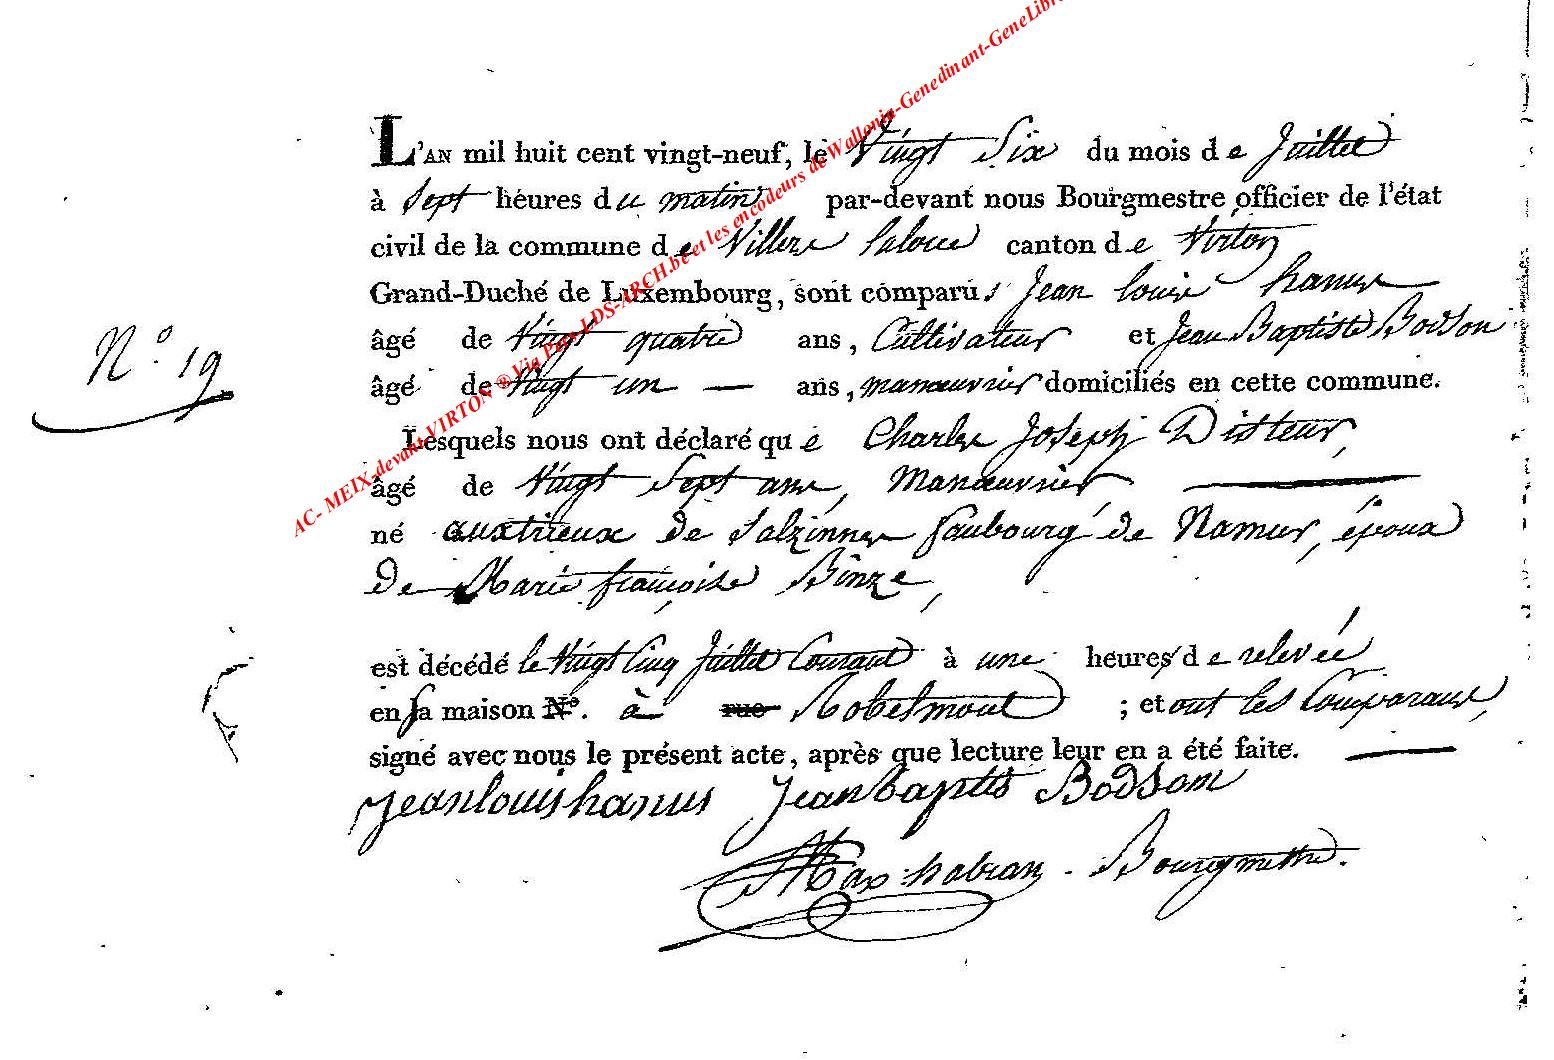 AC- MEIX-devant-VIRTON ® Via Pure LDS-ARCH.be et les encodeurs de Wallonia-Genedinant-GeneLibr
L'AN mil huit cent vingt-neuf, le Vingt Six du mois de Juillet
à Sept heures du matin par-devant nous Bourgmestre officier de l'état
civil de la commune de Villers laloue canton de Virton
Grand-Duché de Luxembourg, sont comparus Jean louis hanus
âgé de Vingt quatre ans, Cultivateur et Jean Baptiste Bodson
N° 19
âgé de Vingt un — ans, manœuvrier domiciliés en cette commune.
Lesquels nous ont déclaré que Charles Joseph Disteur,
âgé de Vingt Sept ans, Manœuvrier
né aux trieux de Salzinnes faubourg de Namur, époux
de Marie françoise Binze,
est décédé le Vingt Cinq Juillet Courant à une heures de relevée
en sa maison N°. à rue Robelmont ; et ont les Comparans,
signé avec nous le présent acte, après que lecture leur en a été faite.
jeanlouishanus Jean baptis Bodson
Max habran - Bourgmettre.